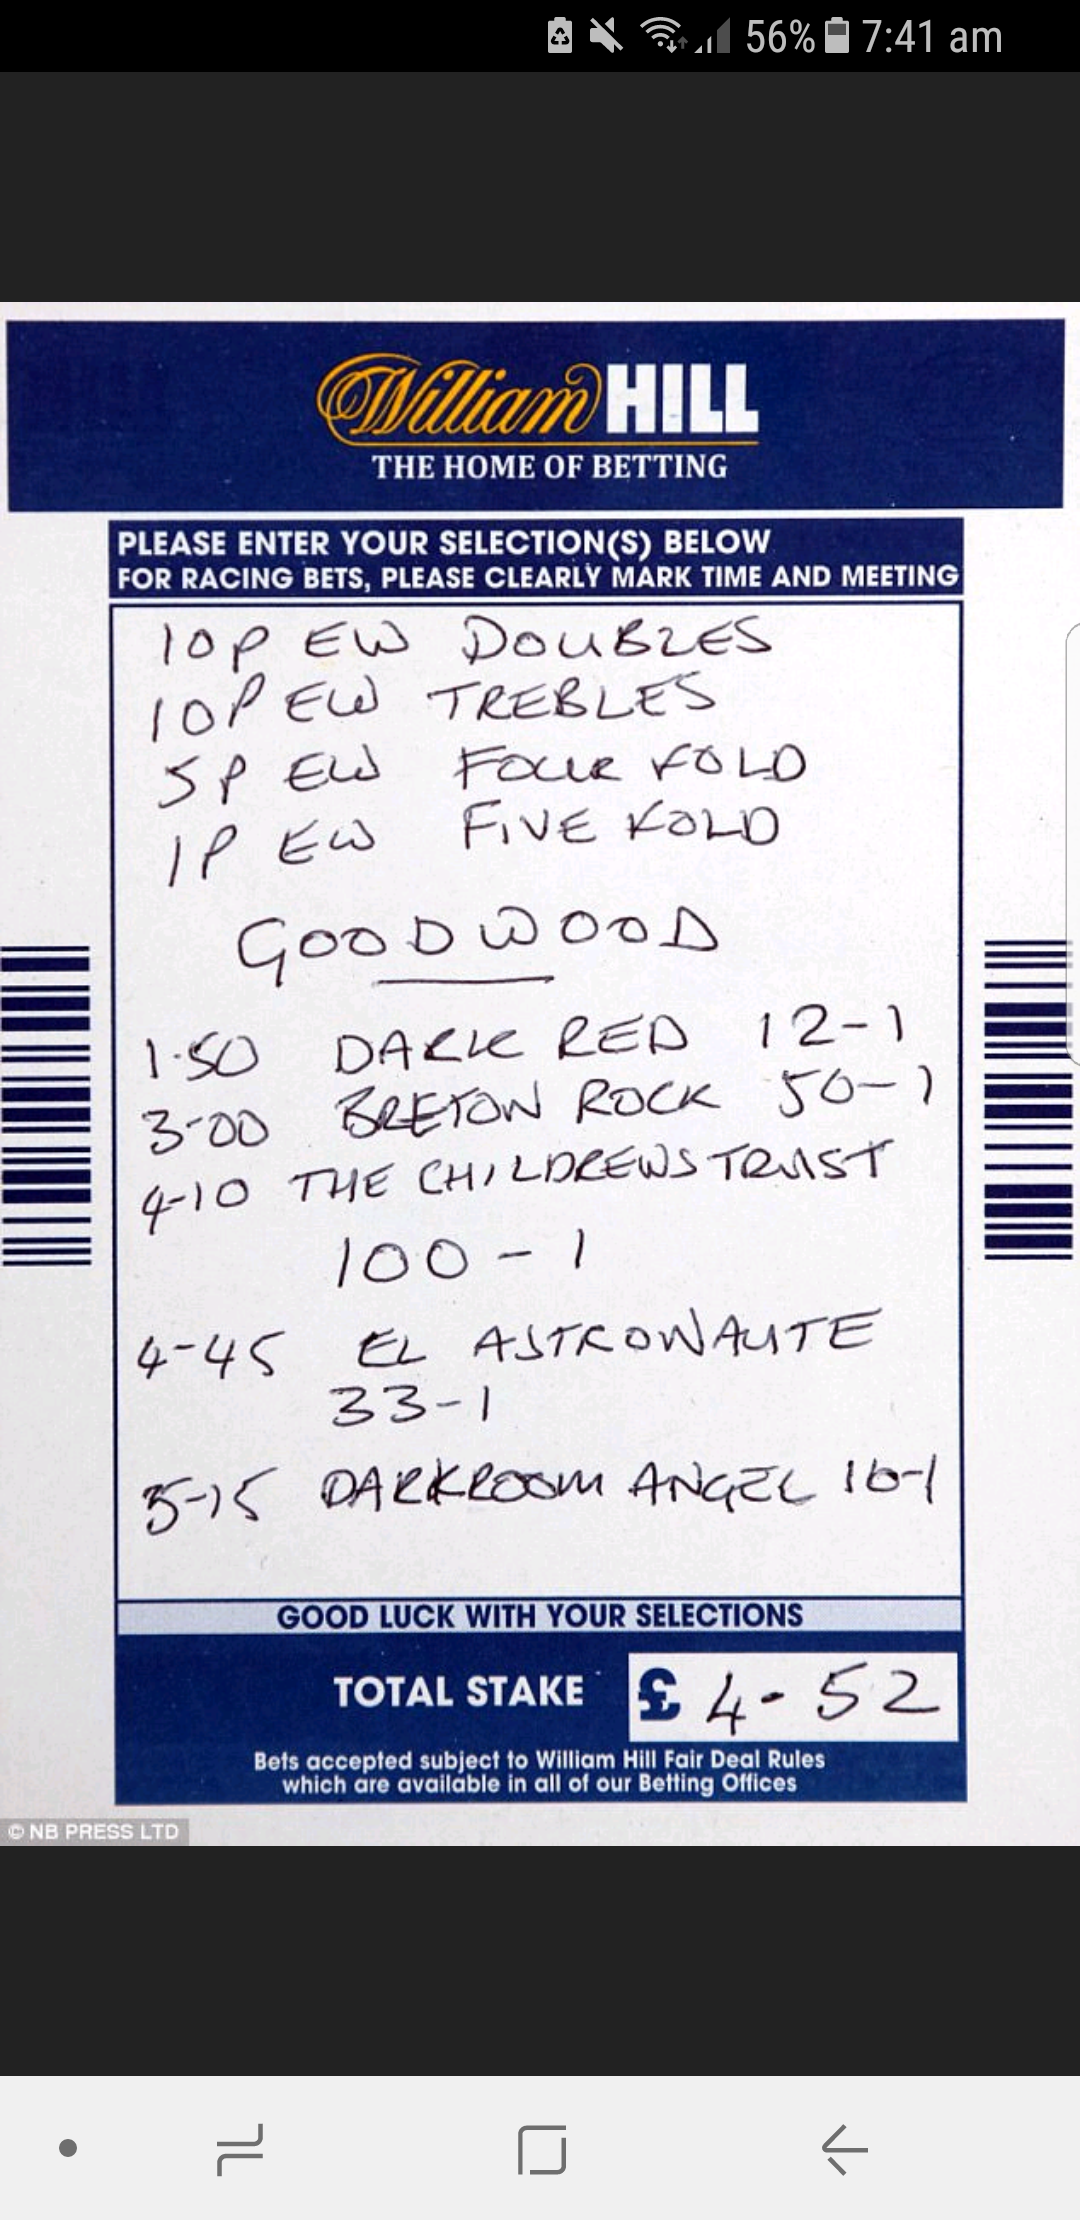 56% 7:41 am
William HILL
THE HOME OF BETTING
PLEASE ENTER YOUR SELECTION(S) BELOW
FOR RACING BETS, PLEASE CLEARLY MARK TIME AND MEETING
10P EW DOUBLES
10P EW TREBLES
5P EW FOUR FOLD
1P EW FIVE FOLD
GOODWOOD
1.50 DARK RED 12-1
3-00 BRETON ROCK 50-1
4-10 THE CHILDRENS TRUST
100-1
4-45 EL ASTRONAUTE
33-1
5-15 DARKROOM ANGEL 16-1
GOOD LUCK WITH YOUR SELECTIONS
TOTAL STAKE £ 4-52
Bets accepted subject to William Hill Fair Deal Rules
which are available in all of our Betting Offices
© NB PRESS LTD